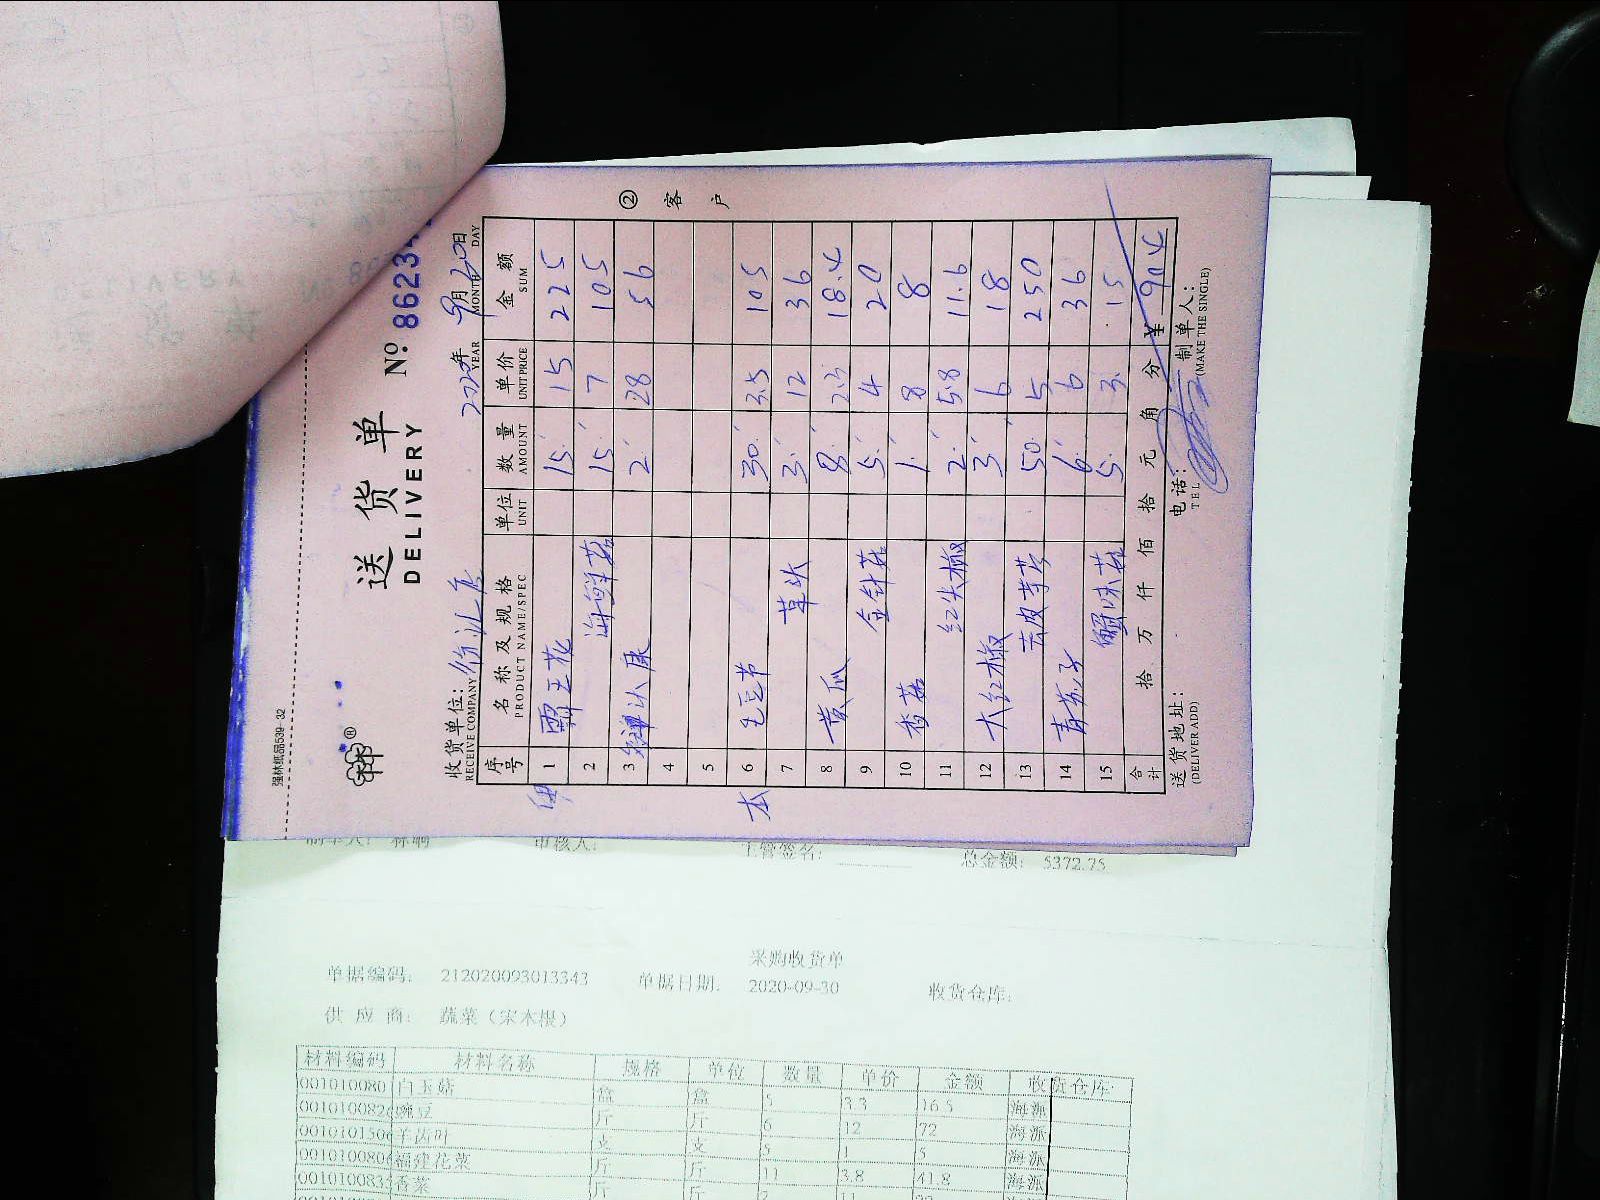 强林纸品539-32
送货单
DELIVERY
№ 8623
② 客户
收货单位:
RECEIVE COMPANY
2020年 9月 30日
YEAR MONTH DAY
序号 名称及规格 单位 数量 单价 金额
PRODUCT NAME/SPEC UNIT AMOUNT UNIT PRICE SUM
1 霸王花 15 15 225
2 海鲜菇 15 7 105
3 2 28 56
4
5
本 6 毛豆节 30 3.5 105
7 草头 3 12 36
8 黄瓜 8 2.3 18.4
9 金针菇 5 4 20
10 香菇 1 8 8
11 红尖椒 2 5.8 11.6
12 大红椒 3 6 18
13 去皮芋艿 50 5 250
14 青茄子 6 6 36
15 蟹味菇 5 3 15
合计 拾 万 仟 佰 拾 元 角 分 ¥ 904
送货地址: 电话: 制单人:
(DELIVER ADD) TEL (MAKE THE SINGLE)
制单人: 审核人: 主管签名: 总金额: 5372.75
采购收货单
单据编码: 212020093013343 单据日期: 2020-09-30 收货仓库:
供应商: 蔬菜(宋木根)
材料编码 材料名称 规格 单位 数量 单价 金额 收货仓库
001010080 白玉菇 盒 盒 5 3.3 16.5 海派
001010082 豌豆 斤 斤 6 12 72 海派
001010150 羊齿叶 支 支 5 1 5 海派
001010080 福建花菜 斤 斤 11 3.8 41.8 海派
001010083 香菜 斤 斤 2 11 22